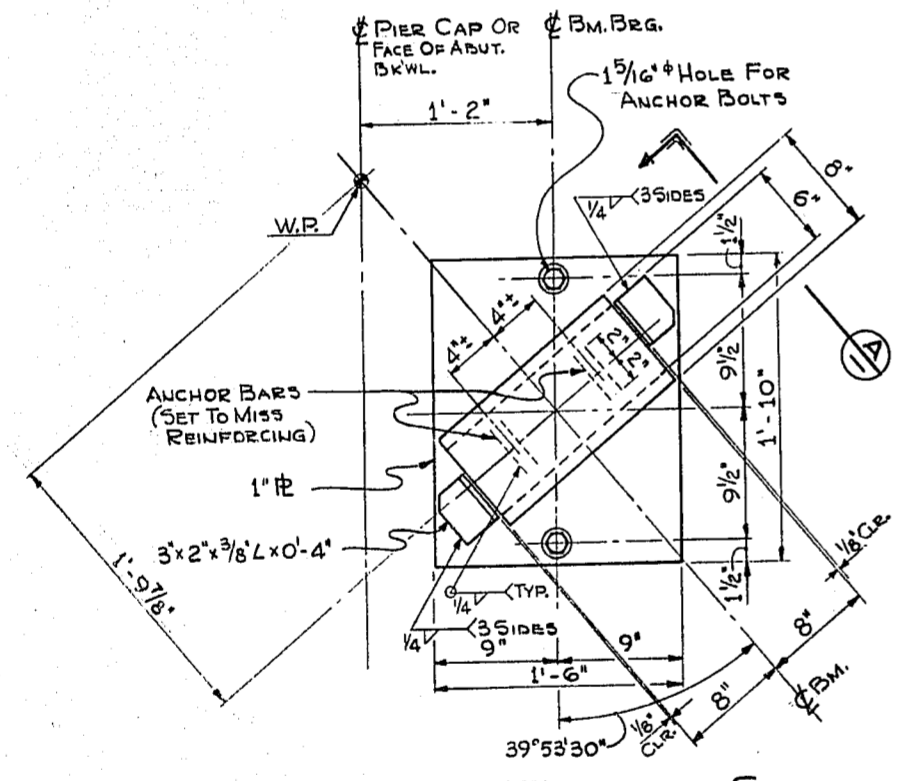 ℄ PIER CAP OR
FACE OF ABUT.
BK'WL.
℄ BM. BRG.
1'-2"
1 5/16" ϕ HOLE FOR
ANCHOR BOLTS
W.P.
1/4 3 SIDES
8"
6"
1 1/2"
4"±
4"±
2"
2"
A
1
9 1/2"
1'-10"
ANCHOR BARS
(SET TO MISS
REINFORCING)
1" ℄
9 1/2"
3"x2"x3/8" L x 0'-4"
1'-9 7/8"
1/8" CLR.
1 1/2"
1/4 TYP.
1/4 3 SIDES
9"
9"
1'-6"
8"
8"
℄ BM.
1/8"
CLR.
39°53'30"